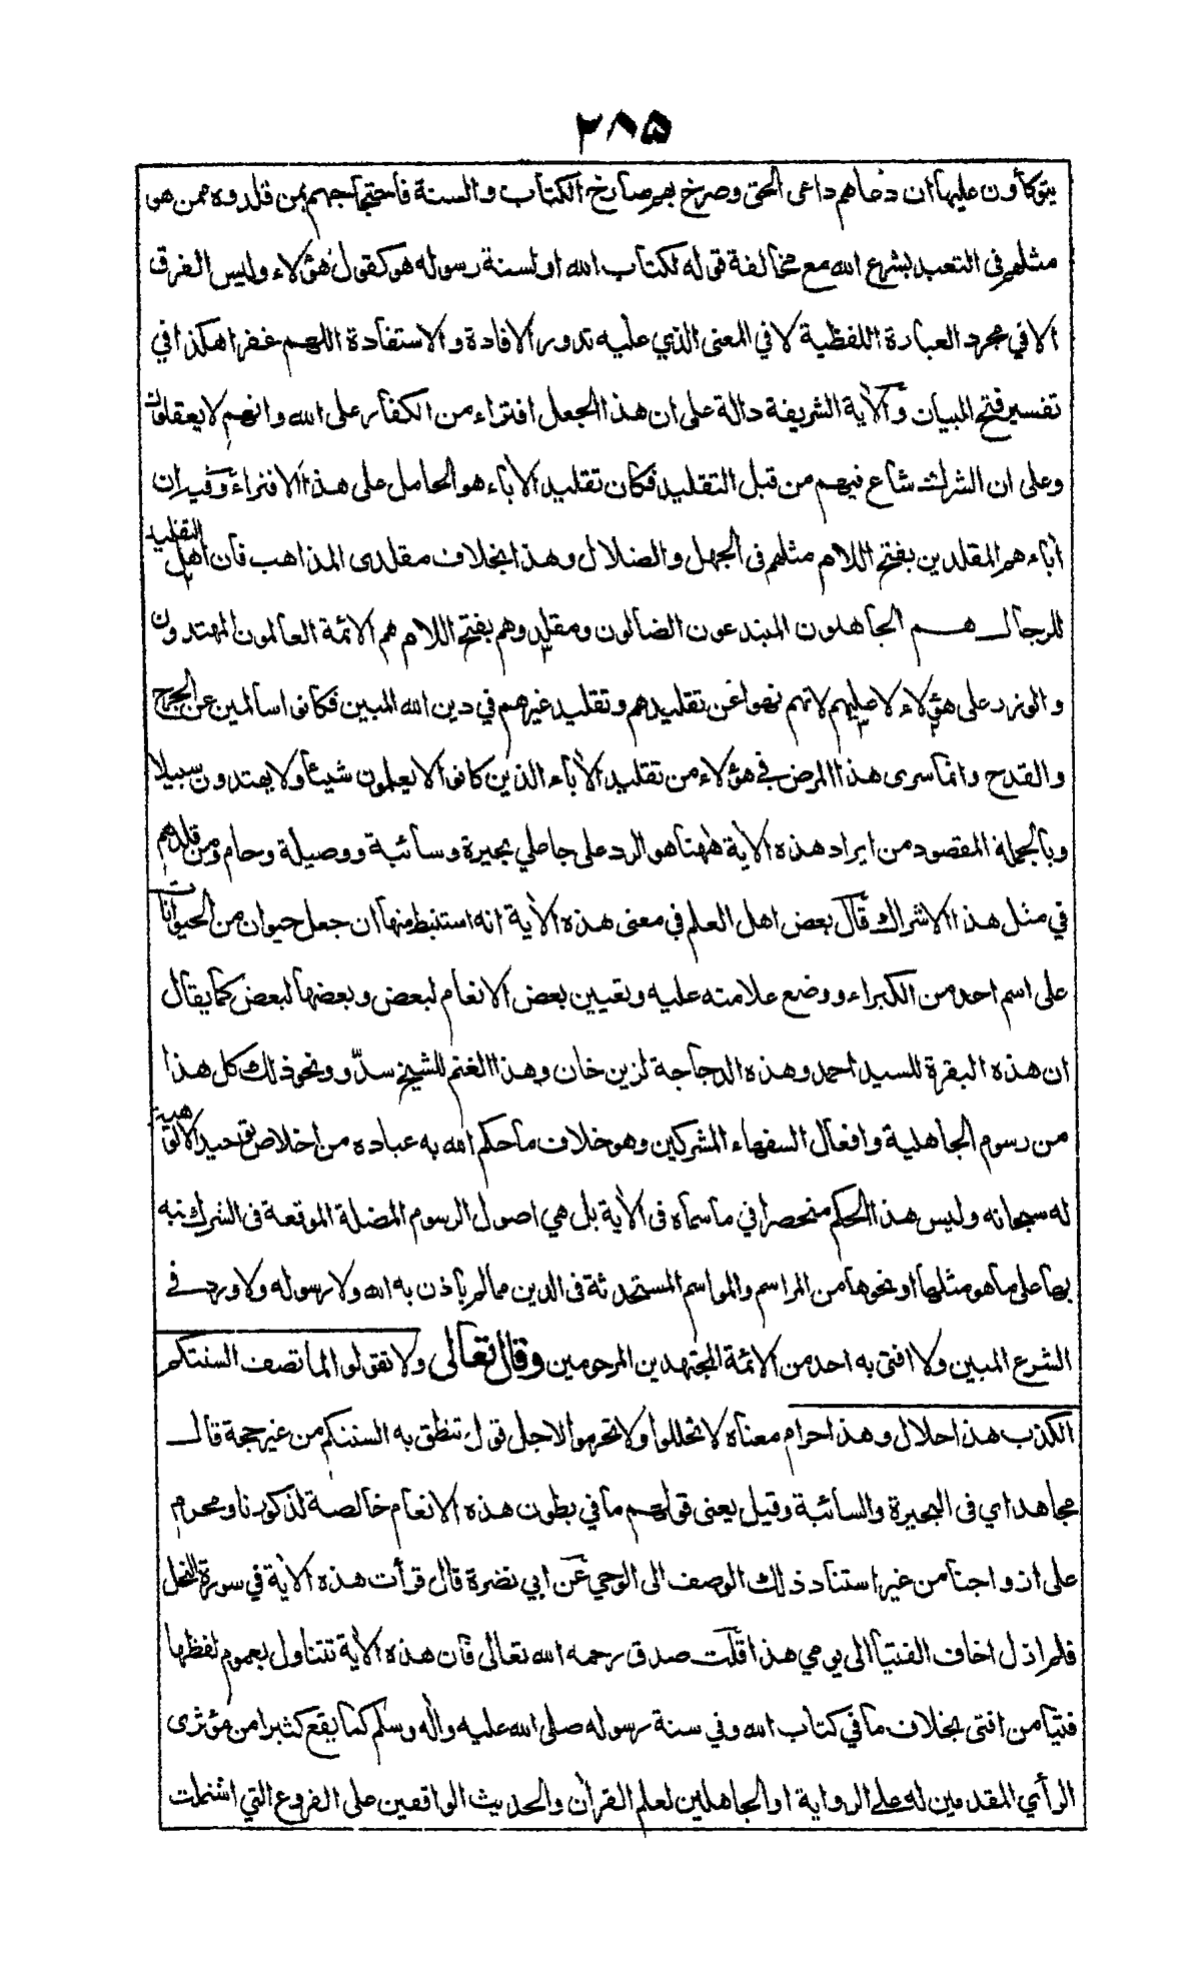 ٢٨٥
يتوكأون عليها ان دعاهم داعى الحق وصرخ بهم صارخ الكتاب والسنة فاحتجاجهم بمن قلدوه ممن هو
مثلهم فى التعبد بشرع الله مع مخالفة قوله لكتاب الله او لسنة رسوله هو كقول هؤلاء وليس الفرق
الا في مجرد العبارة اللفظية لا في المعنى الذي عليه تدور الافادة والاستفادة اللهم غفرا هكذا في
تفسير فتح البيان والآية الشريفة دالة على ان هذا الجعل افتراء من الكفار على الله وانهم لا يعقلون
وعلى ان الشرك شاع فيهم من قبل التقليد فكان تقليد الآباء هو الحامل على هذا الافتراء وفيه ان
آباءهم المقلدين بفتح اللام مثلهم فى الجهل والضلال وهذا بخلاف مقلدى المذاهب فان اهل التقليد
للرجال هم الجاهلون المبتدعون الضالون ومقلدوهم بفتح اللام هم الائمة العالمون المهتدون
والوزر على هؤلاء لا عليهم لانهم نهوا عن تقليدهم وتقليد غيرهم في دين الله المبين فكانوا سالمين عن الجرح
والقدح وانما سرى هذا المرض في هؤلاء من تقليد الآباء الذين كانوا لا يعلمون شيئا ولا يهتدون سبيلا
وبالجملة المقصود من ايراد هذه الآية ههنا هو الرد على جاعلي بحيرة وسائبة ووصيلة وحام ومن قلدهم
في مثل هذا الاشراك قال بعض اهل العلم في معنى هذه الآية انه استنبط منها ان جعل حيوان من الحيوانات
على اسم احد من الكبراء ووضع علامته عليه وتعيين بعض الانعام لبعض وبعضها لبعض كما يقال
ان هذه البقرة للسيد احمد وهذه الدجاجة لزين خان وهذا الغنم للشيخ سدّو ونحو ذلك كل هذا
من رسوم الجاهلية وافعال السفهاء المشركين وهو خلاف ما حكم الله به عباده من اخلاص توحيد الالوهية
له سبحانه وليس هذا الحكم منحصرا في ما سماه فى الآية بل هي اصول الرسوم المضلة الموقعة فى الشرك نبه
بها على ما هو مثلها او نحوها من المراسم والمواسم المستحدثة فى الدين مما لم يأذن به الله ولا رسوله ولا ورد في
الشرع المبين ولا افتى به احد من الائمة المجتهدين المرحومين وقال تعالى ولا تقولوا لما تصف السنتكم
الكذب هذا حلال وهذا حرام معناه لا تحللوا ولا تحرموا لاجل قول تنطق به السنتكم من غير حجة قال
مجاهد اي فى البحيرة والسائبة وقيل يعنى قولهم ما في بطون هذه الانعام خالصة لذكورنا ومحرم
على ازواجنا من غير استناد ذلك الوصف الى الوحي عن ابي نضرة قال قرأت هذه الآية في سورة النحل
فلم ازل اخاف الفتيا الى يومي هذا قلت صدق رحمه الله تعالى فان هذه الآية تتناول بعموم لفظها
فتيا من افتى بخلاف ما في كتاب الله وفي سنة رسوله صلى الله عليه وآله وسلم كما يقع كثيرا من مؤثرى
الرأي المقدمين له على الرواية او الجاهلين لعلم القرآن والحديث الواقعين على الفروع التي اشتملت